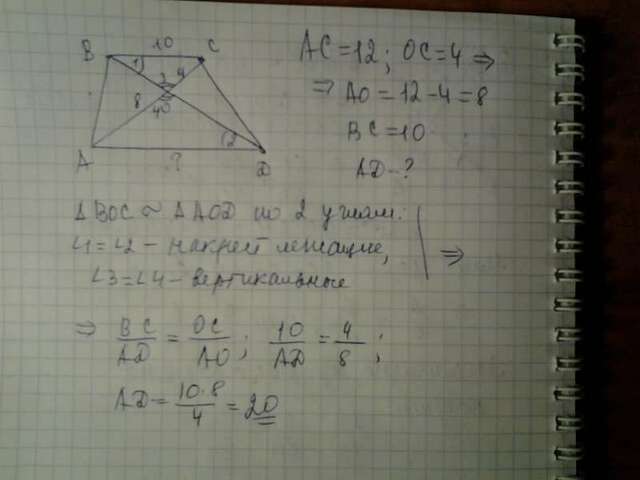 B 10 C
1 3 4
8 4 O
2
A ? D
AC = 12 ; OC = 4 ⇒
⇒ AO = 12 - 4 = 8
BC = 10
AD - ?
Δ BOC ~ Δ AOD по 2 углам:
∠1 = ∠2 - накрест лежащие,
∠3 = ∠4 - вертикальные
⇒
⇒ BC/AD = OC/AO ; 10/AD = 4/8 ;
AD = 10·8/4 = 20